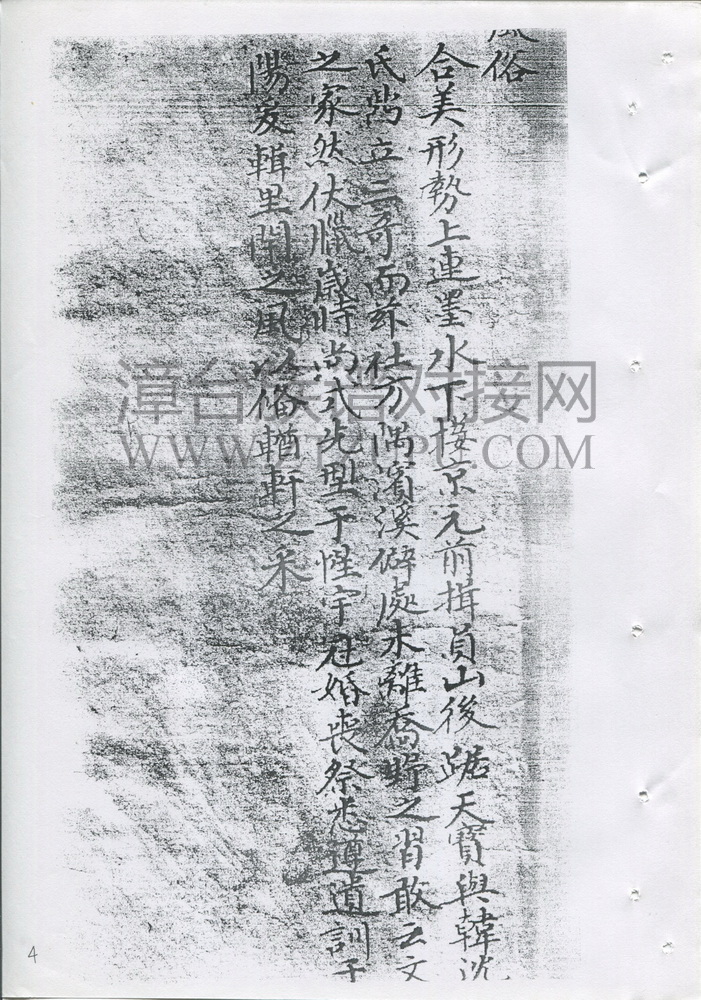 風俗
合美形勢上連墨水下接京元前揖員山後踞天寶與韓沈
氏鼎立三奇而吾社万隅濱溪僻處未離喬野之習敢云文
之家然伏臘歲時尚式先型于惺宇冠婚喪祭悉遵遺訓于
陽爰輯里閈之風以俻輶軒之采
漳台族谱对接网
4